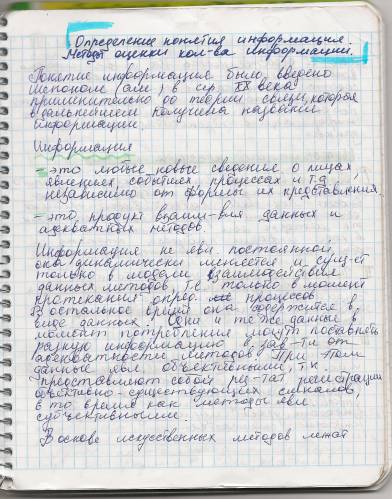 Определение понятия информация.
Метод оценки кол-ва информации.
Понятие информация было введено
Шеноном (сша) в сер. XX века
применительно до теории связи, которая
в дальнейшем получила название
информации
Информация
– это любые новые сведения о лицах,
явлениях событиях процессах и т.д.
независимо от формы их представления.
– это, продукт взаим-вия данных и
адекватных методов.
Информация не явл постоянной,
она динамически меняется и сущ-ет
только в модели взаимодействия
данных методов, т.е. только в момент
протекания опред. процессов
Востальное время она содержится в
виде данных. Одни те же данные в
момент потребления могут поставлять
разную информацию в зав-ти от
адекватности методов При том
данные явл. объективными, т.к.
представляют собой рез-тат регистрации
объективно-существующих сигналов,
в то время как методы явл.
субъективными.
В основе искуственных методов лежат